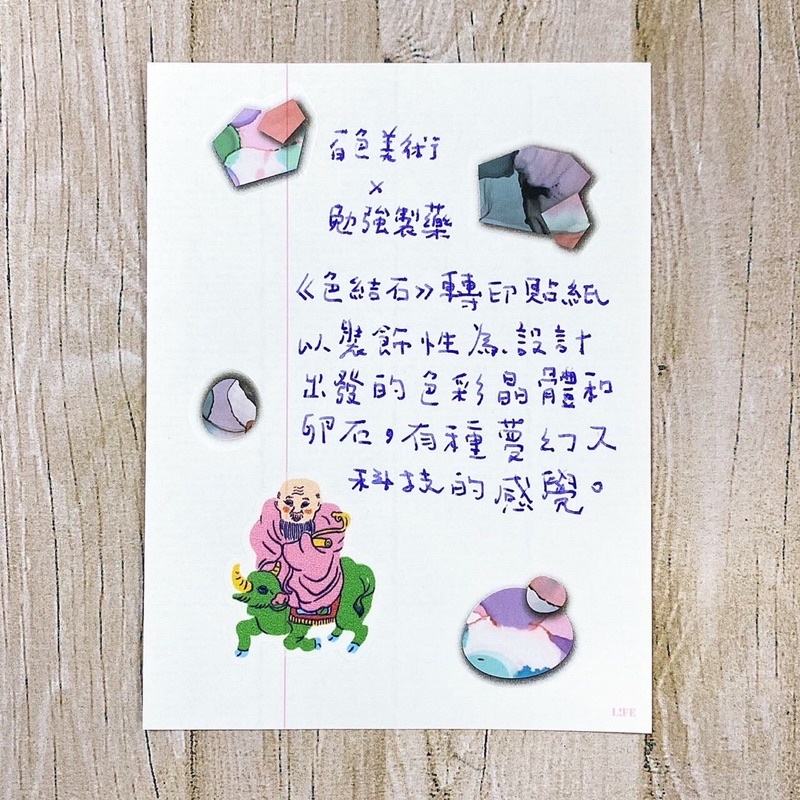 百色美術
×
勉強製藥
《色結石》轉印貼紙
以裝飾性為設計
出發的色彩晶體和
卵石，有種夢幻又
科技的感覺。
L!FE